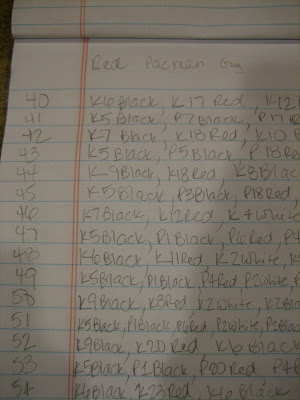 Red Pacman Guy
40 K6Black, K17 Red, K12
41 K5Black, P7Black, P17
42 K7 Black, K18Red, K10
43 K5Black, P5Black, P18Red
44 K9Black, K18Red, K8Black
45 K5Black, P3Black, P18Red,
46 K7Black, K12Red, K4White
47 K5Black, P1Black, P16Red, P4
48 K6Black, K11Red, K2White,
49 K5Black, P1Black, P4Red, P2White,
50 K9Black, K8Red, K2White, K2Black
51 K5Black, P1Black, P6Red, P2White, P2Black
52 K9Black, K20 Red, K6 Black
53 K5Black, P1 Black, P20Red
54 K6Black, K23Red, K6 Black